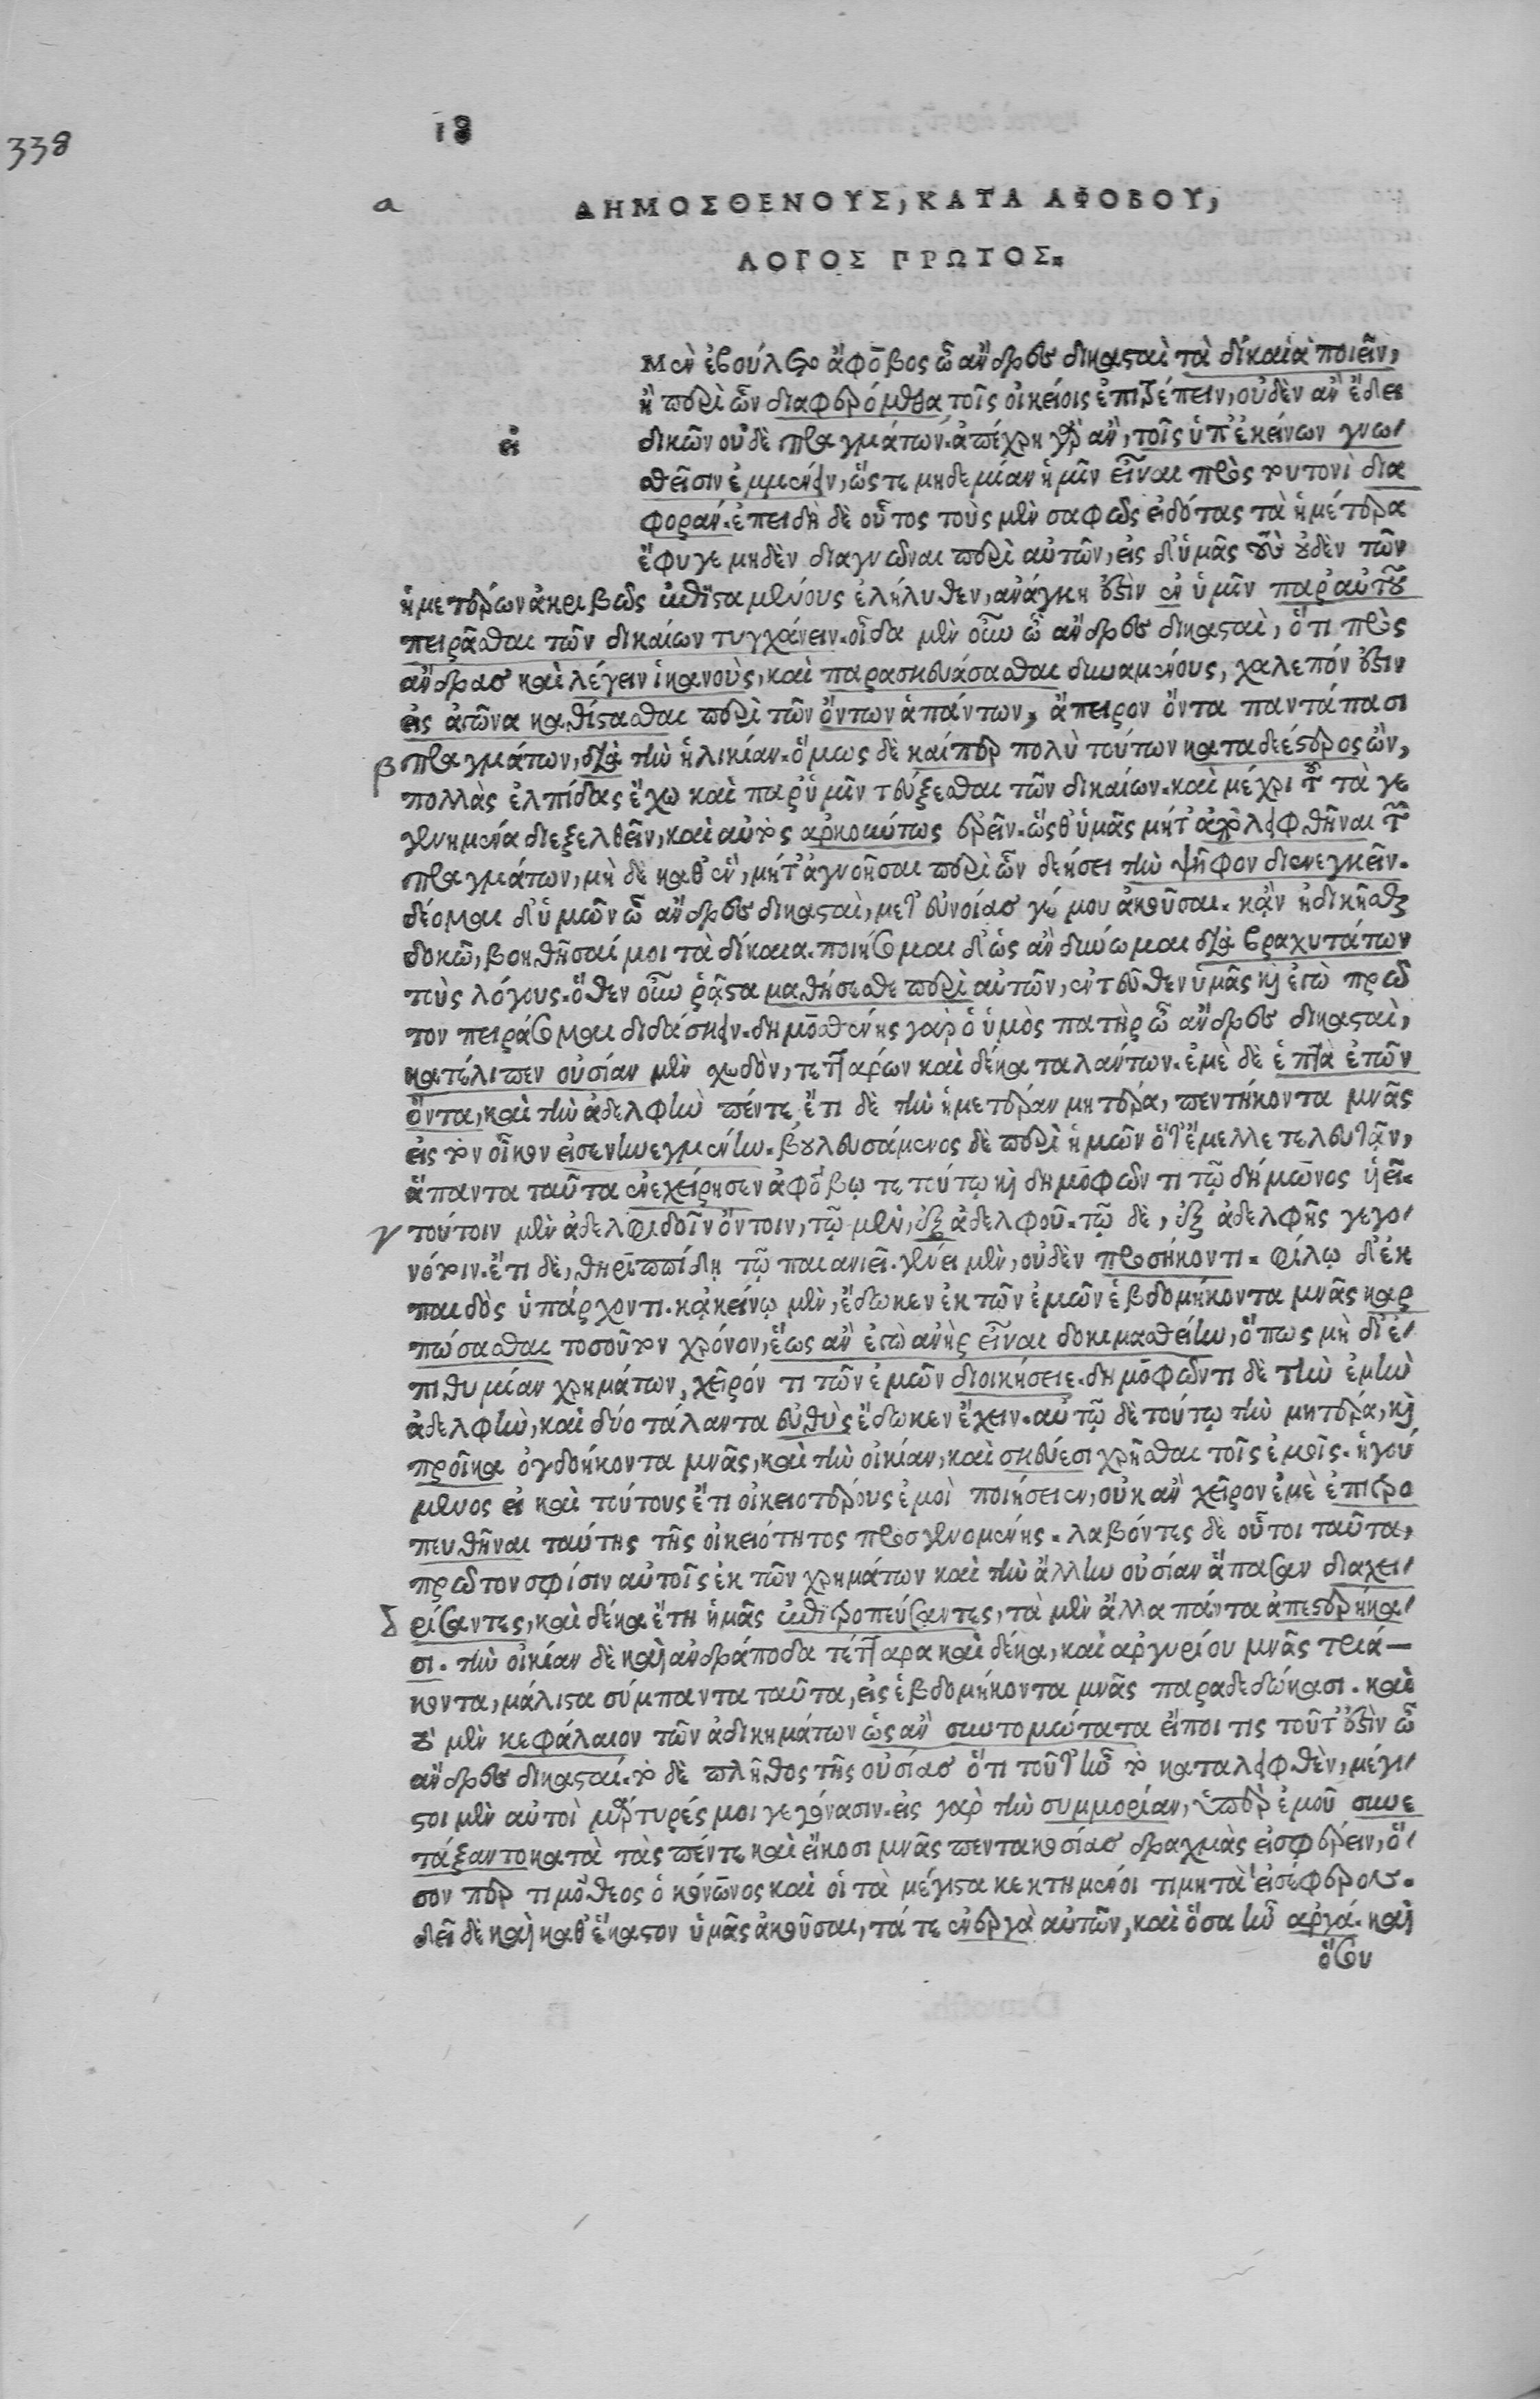 338
18
α
ΔΗΜΟΣΘΕΝΟΥΣ, ΚΑΤΑ ΑΦΟΒΟΥ,
ΛΟΓΟΣ ΠΡΩΤΟΣ.
Μὲν ἐβούλετο ἄφοβος ὦ ἄνδρες δικασταὶ τὰ δίκαια ποιεῖν,
ἢ περὶ ὧν διαφερόμεθα τοῖς οἰκείοις ἐπιτρέπειν, οὐδὲν ἂν ἔδει
ει
δικῶν οὐδὲ πραγμάτων. ἀπέχρη γὰρ ἂν, τοῖς ὑπ' ἐκείνων γνω-
σθεῖσιν ἐμμένειν, ὥστε μηδεμίαν ἡμῖν εἶναι πρὸς τουτονὶ δια
φοράν. ἐπειδὴ δὲ οὗτος τοὺς μὲν σαφῶς εἰδότας τὰ ἡμέτερα
ἔφυγε μηδὲν διαγνῶναι περὶ αὐτῶν, εἰς δ' ὑμᾶς τοὺς οὐδὲν τῶν
ἡμετέρων ἀκριβῶς ἐπισταμένους ἐλήλυθεν, ἀνάγκη ἐστὶν ἐν ὑμῖν παρ' αὐτοῦ
πειρᾶσθαι τῶν δικαίων τυγχάνειν. οἶδα μὲν οὖν ὦ ἄνδρες δικασταὶ, ὅτι πρὸς
ἄνδρας καὶ λέγειν ἱκανοὺς, καὶ παρασκευάσασθαι δυναμένους, χαλεπόν ἐστιν
εἰς ἀγῶνα καθίστασθαι περὶ τῶν ὄντων ἁπάντων, ἄπειρον ὄντα παντάπασι
β πραγμάτων, διὰ τὴν ἡλικίαν. ὅμως δὲ καίπερ πολὺ τούτων καταδεέστερος ὢν,
πολλὰς ἐλπίδας ἔχω καὶ παρ' ὑμῖν τεύξεσθαι τῶν δικαίων. καὶ μέχρι τοῦ τὰ γε
γενημένα διεξελθεῖν, καὶ αὐτὸς ἀρκούντως ἐρεῖν. ὥσθ' ὑμᾶς μήτ' ἀπολειφθῆναι τῶν
πραγμάτων, μὴ δὲ καθ' ἓν, μήτ' ἀγνοῆσαι περὶ ὧν δεήσει τὴν ψῆφον διενεγκεῖν.
δέομαι δ' ὑμῶν ὦ ἄνδρες δικασταὶ, μετ' εὐνοίας γέ μου ἀκοῦσαι. κἂν ἠδικῆσθαι
δοκῶ, βοηθῆσαί μοι τὰ δίκαια. ποιήσομαι δ' ὡς ἂν δύνωμαι διὰ βραχυτάτων
τοὺς λόγους. ὅθεν οὖν ῥᾷστα μαθήσεσθε περὶ αὐτῶν, ἐντεῦθεν ὑμᾶς καὶ ἐγὼ πρῶ
τον πειράσομαι διδάσκειν. δημοσθένης γὰρ ὁ ὑμὸς πατὴρ ὦ ἄνδρες δικασταὶ,
κατέλιπεν οὐσίαν μὲν σχεδὸν, τεττάρων καὶ δέκα ταλάντων. ἐμὲ δὲ ἑπτὰ ἐτῶν
ὄντα, καὶ τὴν ἀδελφὴν πέντε, ἔτι δὲ τὴν ἡμετέραν μητέρα, πεντήκοντα μνᾶς
εἰς τὸν οἶκον εἰσενηνεγμένην. βουλευσάμενος δὲ περὶ ἡμῶν ὅτ' ἔμελλε τελευτᾷν,
ἅπαντα ταῦτα ἐνεχείρησεν ἀφόβῳ τε τούτῳ καὶ δημοφῶντι τῷ δήμωνος ὑεῖ.
γ τούτοιν μὲν ἀδελφιδοῖν ὄντοιν, τῷ μὲν, ἐξ ἀδελφοῦ. τῷ δὲ, ἐξ ἀδελφῆς γεγο-
νότοιν. ἔτι δὲ, θηριππίδῃ τῷ παιανιεῖ. γένει μὲν, οὐδὲν προσήκοντι. φίλῳ δ' ἐκ
παιδὸς ὑπάρχοντι. κᾀκείνῳ μὲν, ἔδωκεν ἐκ τῶν ἐμῶν ἑβδομήκοντα μνᾶς καρ
πώσασθαι τοσοῦτον χρόνον, ἕως ἂν ἐγὼ ἀνὴρ εἶναι δοκιμασθείην, ὅπως μὴ δι' ἐ-
πιθυμίαν χρημάτων, χεῖρόν τι τῶν ἐμῶν διοικήσειε. δημοφῶντι δὲ τὴν ἐμὴν
ἀδελφὴν, καὶ δύο τάλαντα εὐθὺς ἔδωκεν ἔχειν. αὐτῷ δὲ τούτῳ τὴν μητέρα, καὶ
προῖκα ὀγδοήκοντα μνᾶς, καὶ τὴν οἰκίαν, καὶ σκεύεσι χρῆσθαι τοῖς ἐμοῖς. ἡγού
μενος εἰ καὶ τούτους ἔτι οἰκειοτέρους ἐμοὶ ποιήσειεν, οὐκ ἂν χεῖρον ἐμὲ ἐπιτρο
πευθῆναι ταύτης τῆς οἰκειότητος προσγενομένης. λαβόντες δὲ οὗτοι ταῦτα,
πρῶτον σφίσιν αὐτοῖς ἐκ τῶν χρημάτων καὶ τὴν ἄλλην οὐσίαν ἅπασαν διαχει-
δ ρίσαντες, καὶ δέκα ἔτη ἡμᾶς ἐπιτροπεύσαντες, τὰ μὲν ἄλλα πάντα ἀπεστερήκα-
σι. τὴν οἰκίαν δὲ καὶ ἀνδράποδα τέτταρα καὶ δέκα, καὶ ἀργυρίου μνᾶς τριά-
κοντα, μάλιστα σύμπαντα ταῦτα, εἰς ἑβδομήκοντα μνᾶς παραδεδώκασι. καὶ
τὸ μὲν κεφάλαιον τῶν ἀδικημάτων ὡς ἂν συντομώτατα εἴποι τις τοῦτ' ἐστὶν ὦ
ἄνδρες δικασταί. τὸ δὲ πλῆθος τῆς οὐσίας ὅτι τοῦτ' ἦν τὸ καταλειφθὲν, μέγι-
στοι μὲν αὐτοὶ μάρτυρές μοι γεγόνασιν. εἰς γὰρ τὴν συμμορίαν, ὑπὲρ ἐμοῦ συνε
τάξαντο κατὰ τὰς πέντε καὶ εἴκοσι μνᾶς πεντακοσίας δραχμὰς εἰσφέρειν, ὅ-
σον περ τιμόθεος ὁ κόνωνος καὶ οἱ τὰ μέγιστα κεκτημένοι τιμητὰ εἰσέφερον.
δεῖ δὲ καὶ καθ' ἕκαστον ὑμᾶς ἀκοῦσαι, τά τε ἐνεργὰ αὐτῶν, καὶ ὅσα ἦν ἀργά. καὶ
ὅσου